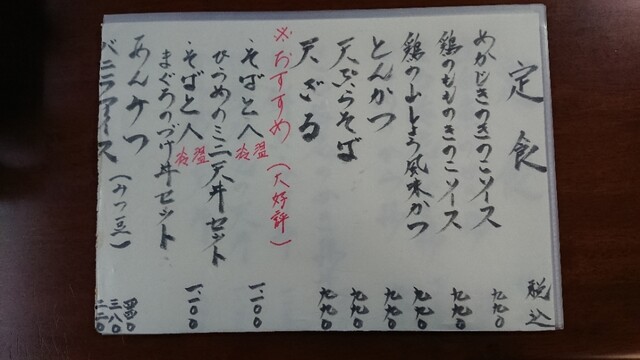 定食 税込
めかじきのきのこソース 九九〇
鶏のもものきのこソース 九九〇
鶏の山しょう風味かつ 九九〇
とんかつ 九九〇
天ぷらそば 九九〇
天ざる 九九〇
※おすすめ(大好評)
・そばと 温 冷 一、一〇〇
ひらめのミニ天丼セット
・そばと 温 冷 一、一〇〇
まぐろのづけ丼セット
あんみつ(みつ豆) 四四〇 三八〇
バニラアイス 二二〇